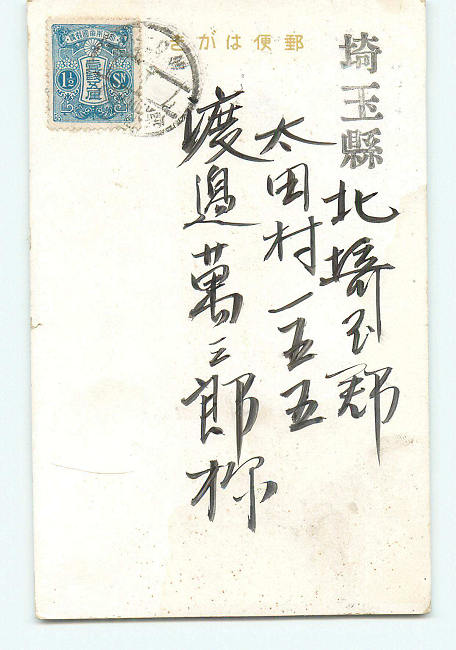 郵便はがき
埼玉縣
北埼玉郡
太田村一五五
渡邉萬三郎様
大日本帝國郵便
壹錢五厘
1½ Sn